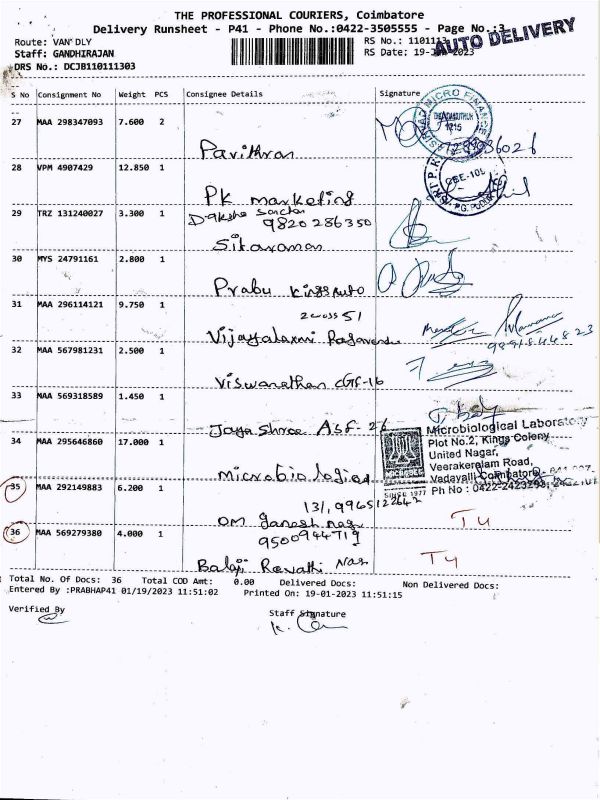 THE PROFESSIONAL COURIERS, Coimbatore
Delivery Runsheet - P41 - Phone No.:0422-3505555 - Page No.:3
AUTO DELIVERY
Route: VAN DLY
RS No.: 1101113
Staff: GANDHIRAJAN
RS Date: 19-Jan-2023
DRS No.: DCJB110111303
S No Consignment No Weight PCS Consignee Details Signature
27 MAA 298347093 7.600 2
Pavithran
28 VPM 4907429 12.850 1
PK marketing
29 TRZ 131240027 3.300 1
9820286350
Sitaraman
30 MYS 24791161 2.800 1
Prabu Kings Auto
31 MAA 296114121 9.750 1
51
Vijayalaxmi
32 MAA 567981231 2.500 1
Viswanathan
33 MAA 569318589 1.450 1
Jayashree
34 MAA 295646860 17.000 1
SINCE 1977
Microbiological Laboratory
Plot No.2, Kings Colony
United Nagar,
Veerakeralam Road,
Vadavalli Coimbatore
Ph No : 0422-2423293,
35 MAA 292149883 6.200 1
131, 9965122642
OM Ganesh nag
36 MAA 569279380 4.000 1
9500944719
Balaji Revathi Nag
Total No. Of Docs: 36 Total COD Amt: 0.00 Delivered Docs: Non Delivered Docs:
Entered By :PRABHAP41 01/19/2023 11:51:02 Printed On: 19-01-2023 11:51:15
Verified By
Staff Signature